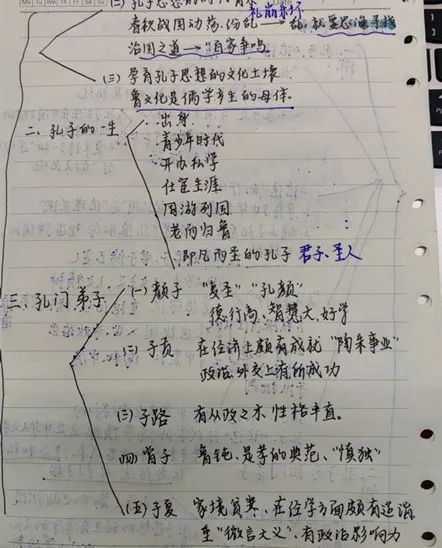 Mo Tu We Th Fr Sa Su
礼崩乐坏
春秋战国动荡、纷乱 → 乱, 就要思考寻找
治国之道 → 百家争鸣
(三) 孕育孔子思想的文化土壤
鲁文化是儒学产生的母体
二、孔子的一生
出身
青少年时代
开办私学
仕宦生涯
周游列国
老而归鲁
即凡而圣的孔子 君子、圣人
三、孔门弟子
(一) 颜子 "复圣" "孔颜"
德行高、智慧大、好学
(二) 子贡 在经济上颇有成就 "陶朱事业"
政治、外交上有所成功
(三) 子路 有从政之术, 性格率直。
(四) 曾子 鲁钝、是孝的典范、"慎独"
(五) 子夏 家境贫寒、在经学方面颇有造诣
坐"微言大义"、有政治影响力